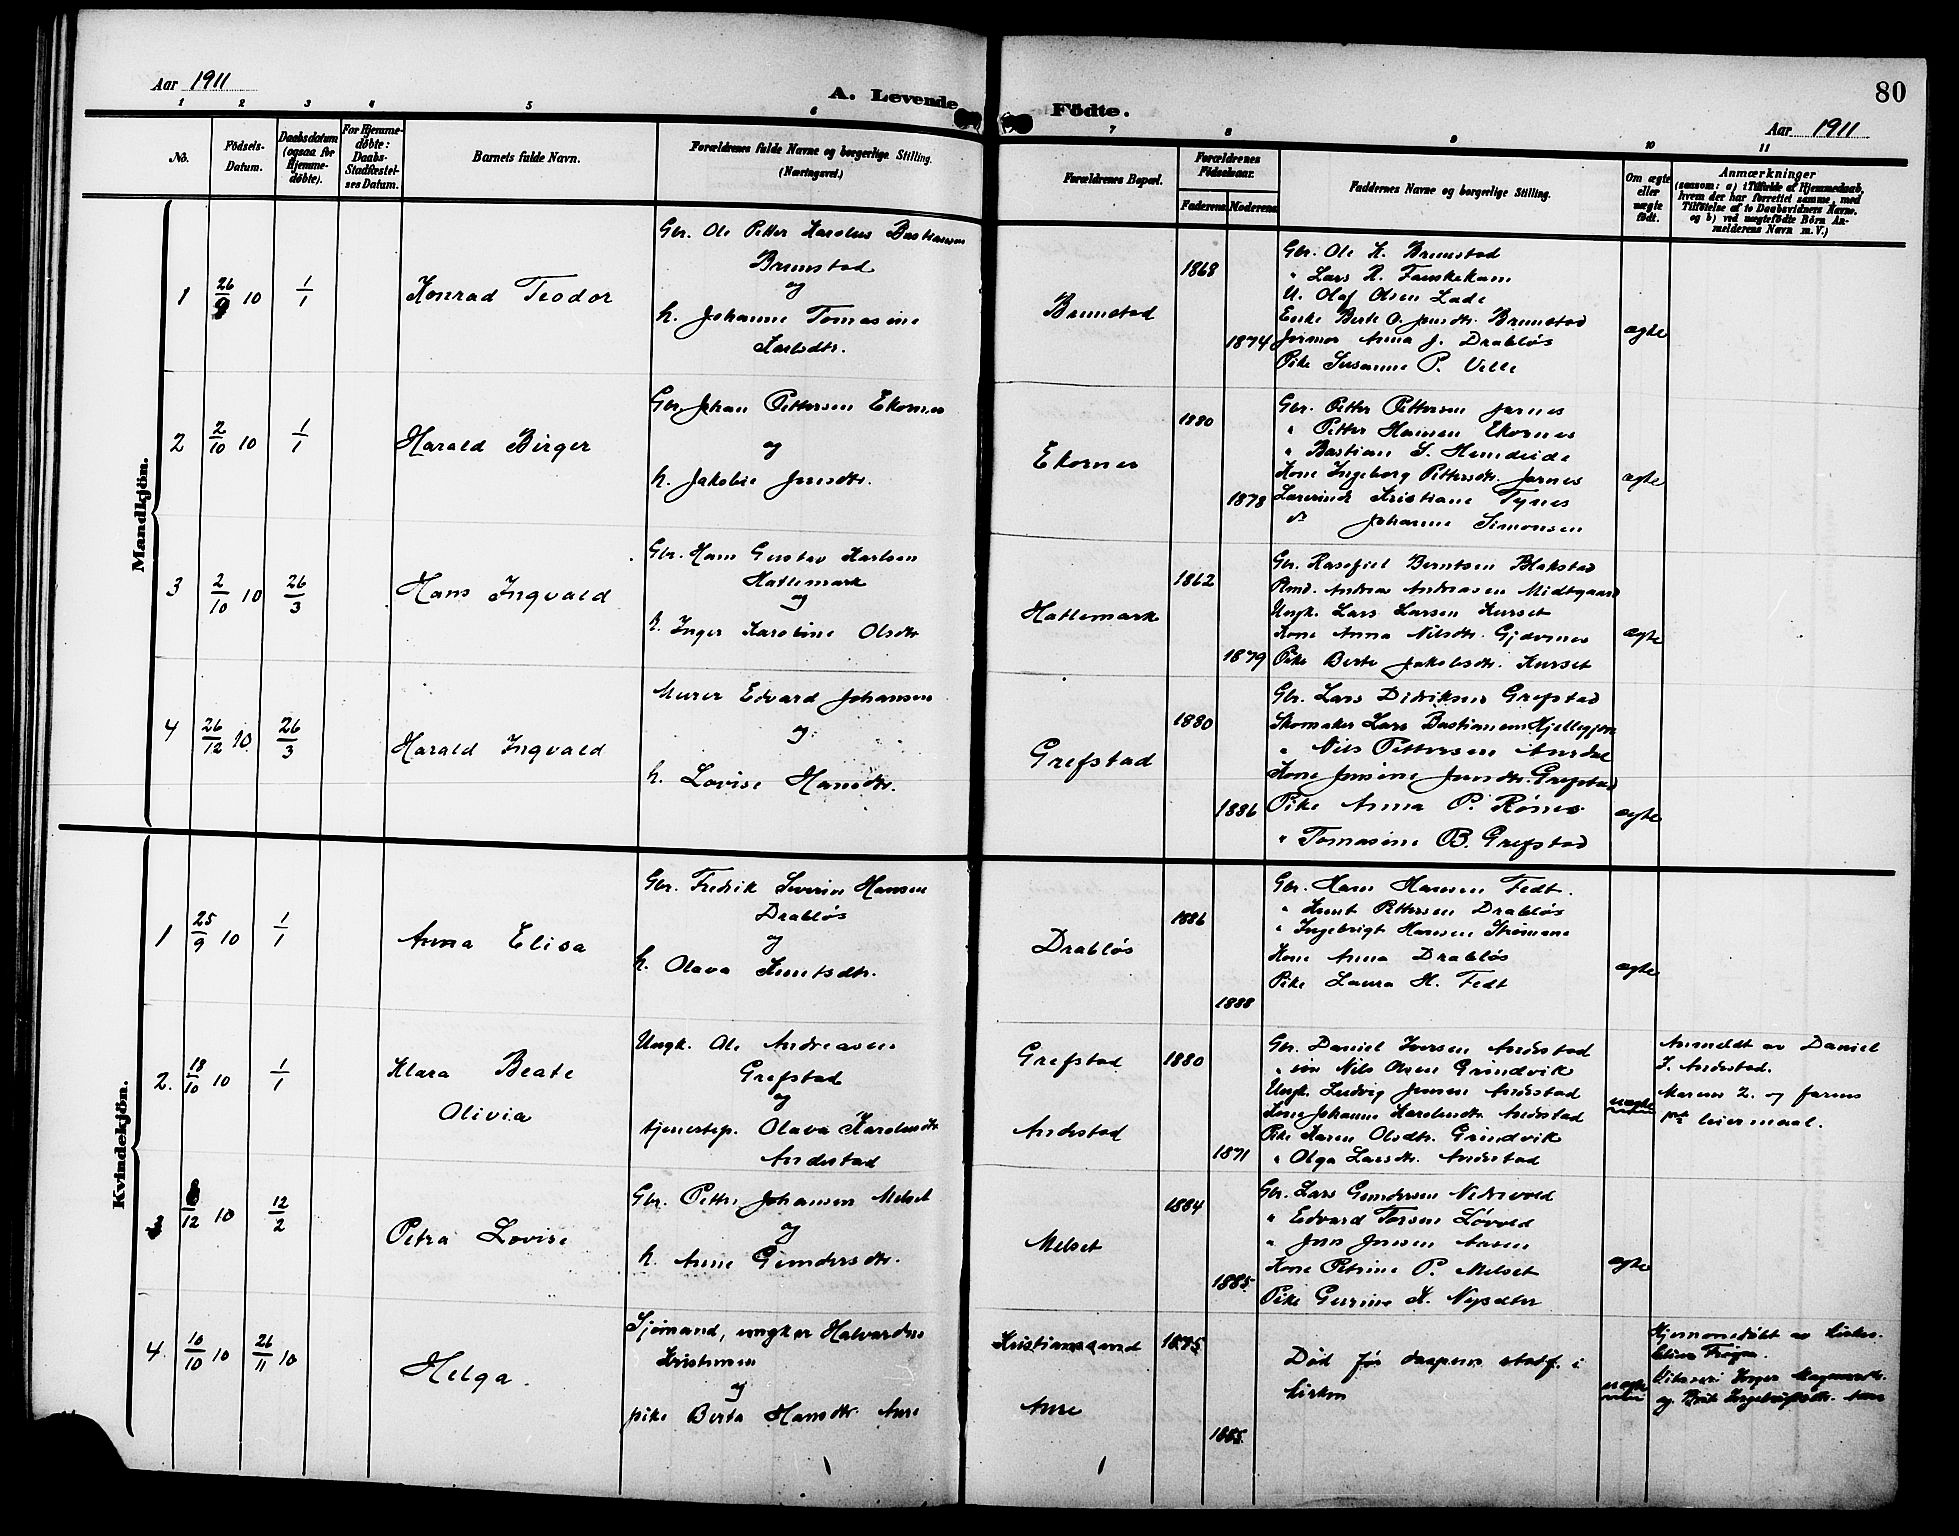 Aar 1911
A. Levende Födte.
80
Aar 1911
1 2 3 4 5 6 7 8 9 10 11
No.
Födsels-Datum.
Daabsdatum (ogsaa for Hjemme-døbte).
For Hjemme-døbte: Daabs-Stadfæstel-ses Datum.
Barnets fulde Navn.
Forældrenes fulde Navne og borgerlige Stilling. (Næringsvei.)
Forældrenes Bopæl.
Forældrenes Födselsaar.
Faderens Moderens
Faddernes Navne og borgerlige Stilling.
Om ægte eller uægte födt.
Anmærkninger
(saasom: a) i Tilfælde af Hjemmedaab, hvem der har forrettet samme, med Tilföielse af to Daabsvidners Navne, og b) ved uægtefödte Börn An-melderens Navn m.V.)
Mandkjön.
1 26/9 10 1/1
Konrad Teodor
Gbr. Ole Petter Karolus Bastiansen
Brunstad
og
h. Johanne Tomasine
Karlsdtr.
Brunstad
1868
1874
Gbr. Ole K. Brunstad
" Lars R.
U. Olaf Olsen Lade
Enke Berte O. Jensdtr. Brunstad
Jormor Anna J. Drabløs
Pike Susanne P. Velle
ægte
2 2/10 10 1/1
Harald Birger
Gbr. Johan Pettersen Ekornes
og
h. Jakobie Jensdtr.
Ekornes
1880
1878
Gbr. Petter Pettersen Jarnes
" Petter Hansen Ekornes
" Bastian S. Hundeide
Kone Ingeborg Pettersdtr. Jarnes
Lærerinde Kristiane Tynes
do Johanne Simonsen
ægte
3 2/10 10 26/3
Hans Ingvald
Gbr. Hans Gustav Karlsen
Hatlemark
og
h. Inger Karoline Olsdtr
Hatlemark
1862
1879
Gbr. Rasefiel Berntsen Blakstad
Rmd. Andreas Andreasen Midtgaard
Ungk. Lars Larsen Kurset
Kone Anna Nilsdtr. Gjævenes
Pike Berte Jakobsdtr. Kurset
ægte
4 26/12 10 26/3
Harald Ingvald
Murer Edvard Johansen
og
h. Lovise Hansdtr.
Grefstad
1880
1886
Gbr. Lars Didriksen Grefstad
Skomaker Lars Bastiansen
" Nils Pettersen Aursdal
Kone Jensine Jensdtr. Grefstad
Pike Anna P. Rønes
" Tomasine B. Grefstad
ægte
Kvindekjön.
1 25/9 10 1/1
Anna Elisa
Gbr. Fredrik Severin Hansen
Drabløs
og
h. Olava Knutsdtr.
Drabløs
1886
1888
Gbr. Hans Hansen Fedt.
" Knut Pettersen Drabløs
" Ingebrigt Hansen Strømane
Kone Anna Drabløs
Pike Laura H. Fedt
ægte
2. 18/10 10 1/1
Klara Beate
Olivia
Ungk. Ole Andreasen
Grefstad
og
tjenestep. Olava Karolusdtr.
Andestad
Grefstad
Andestad
1880
1871
Gbr. Daniel Iversen Andestad
" Nils Olsen Grindvik
Ungk. Ludvig Jensen Andestad
Kone Johanne Karolusdtr. Andestad
Pike Karen Olsdtr. Grindvik
" Olga Larsdtr. Andestad
uægte
Anmeldt av Daniel
I. Andestad.
Morens 2. og farens
1ste leiermaal.
3 12 10 12/2
Petra Lovise
Gbr. Petter Johansen Melset
og
h. Anne Gundersdtr.
Melset
1884
1885
Gbr. Lars Gundersen Nedrevold
" Edvard Torsen Løvold
" Jens Jensen Aasen
Kone Petrine P. Melset
Pike Gurine K. Nysæter
ægte
4. 10/10 10 26/11 10
Helga.
Sjømand, ungkar Halvard
Kristensen
og
pike Berta Hansdtr. Aure
Kristianssund
Aure
1875
1885
Død før daapens stadf. i
kirken
uægte
Hjemmedøbt av
og